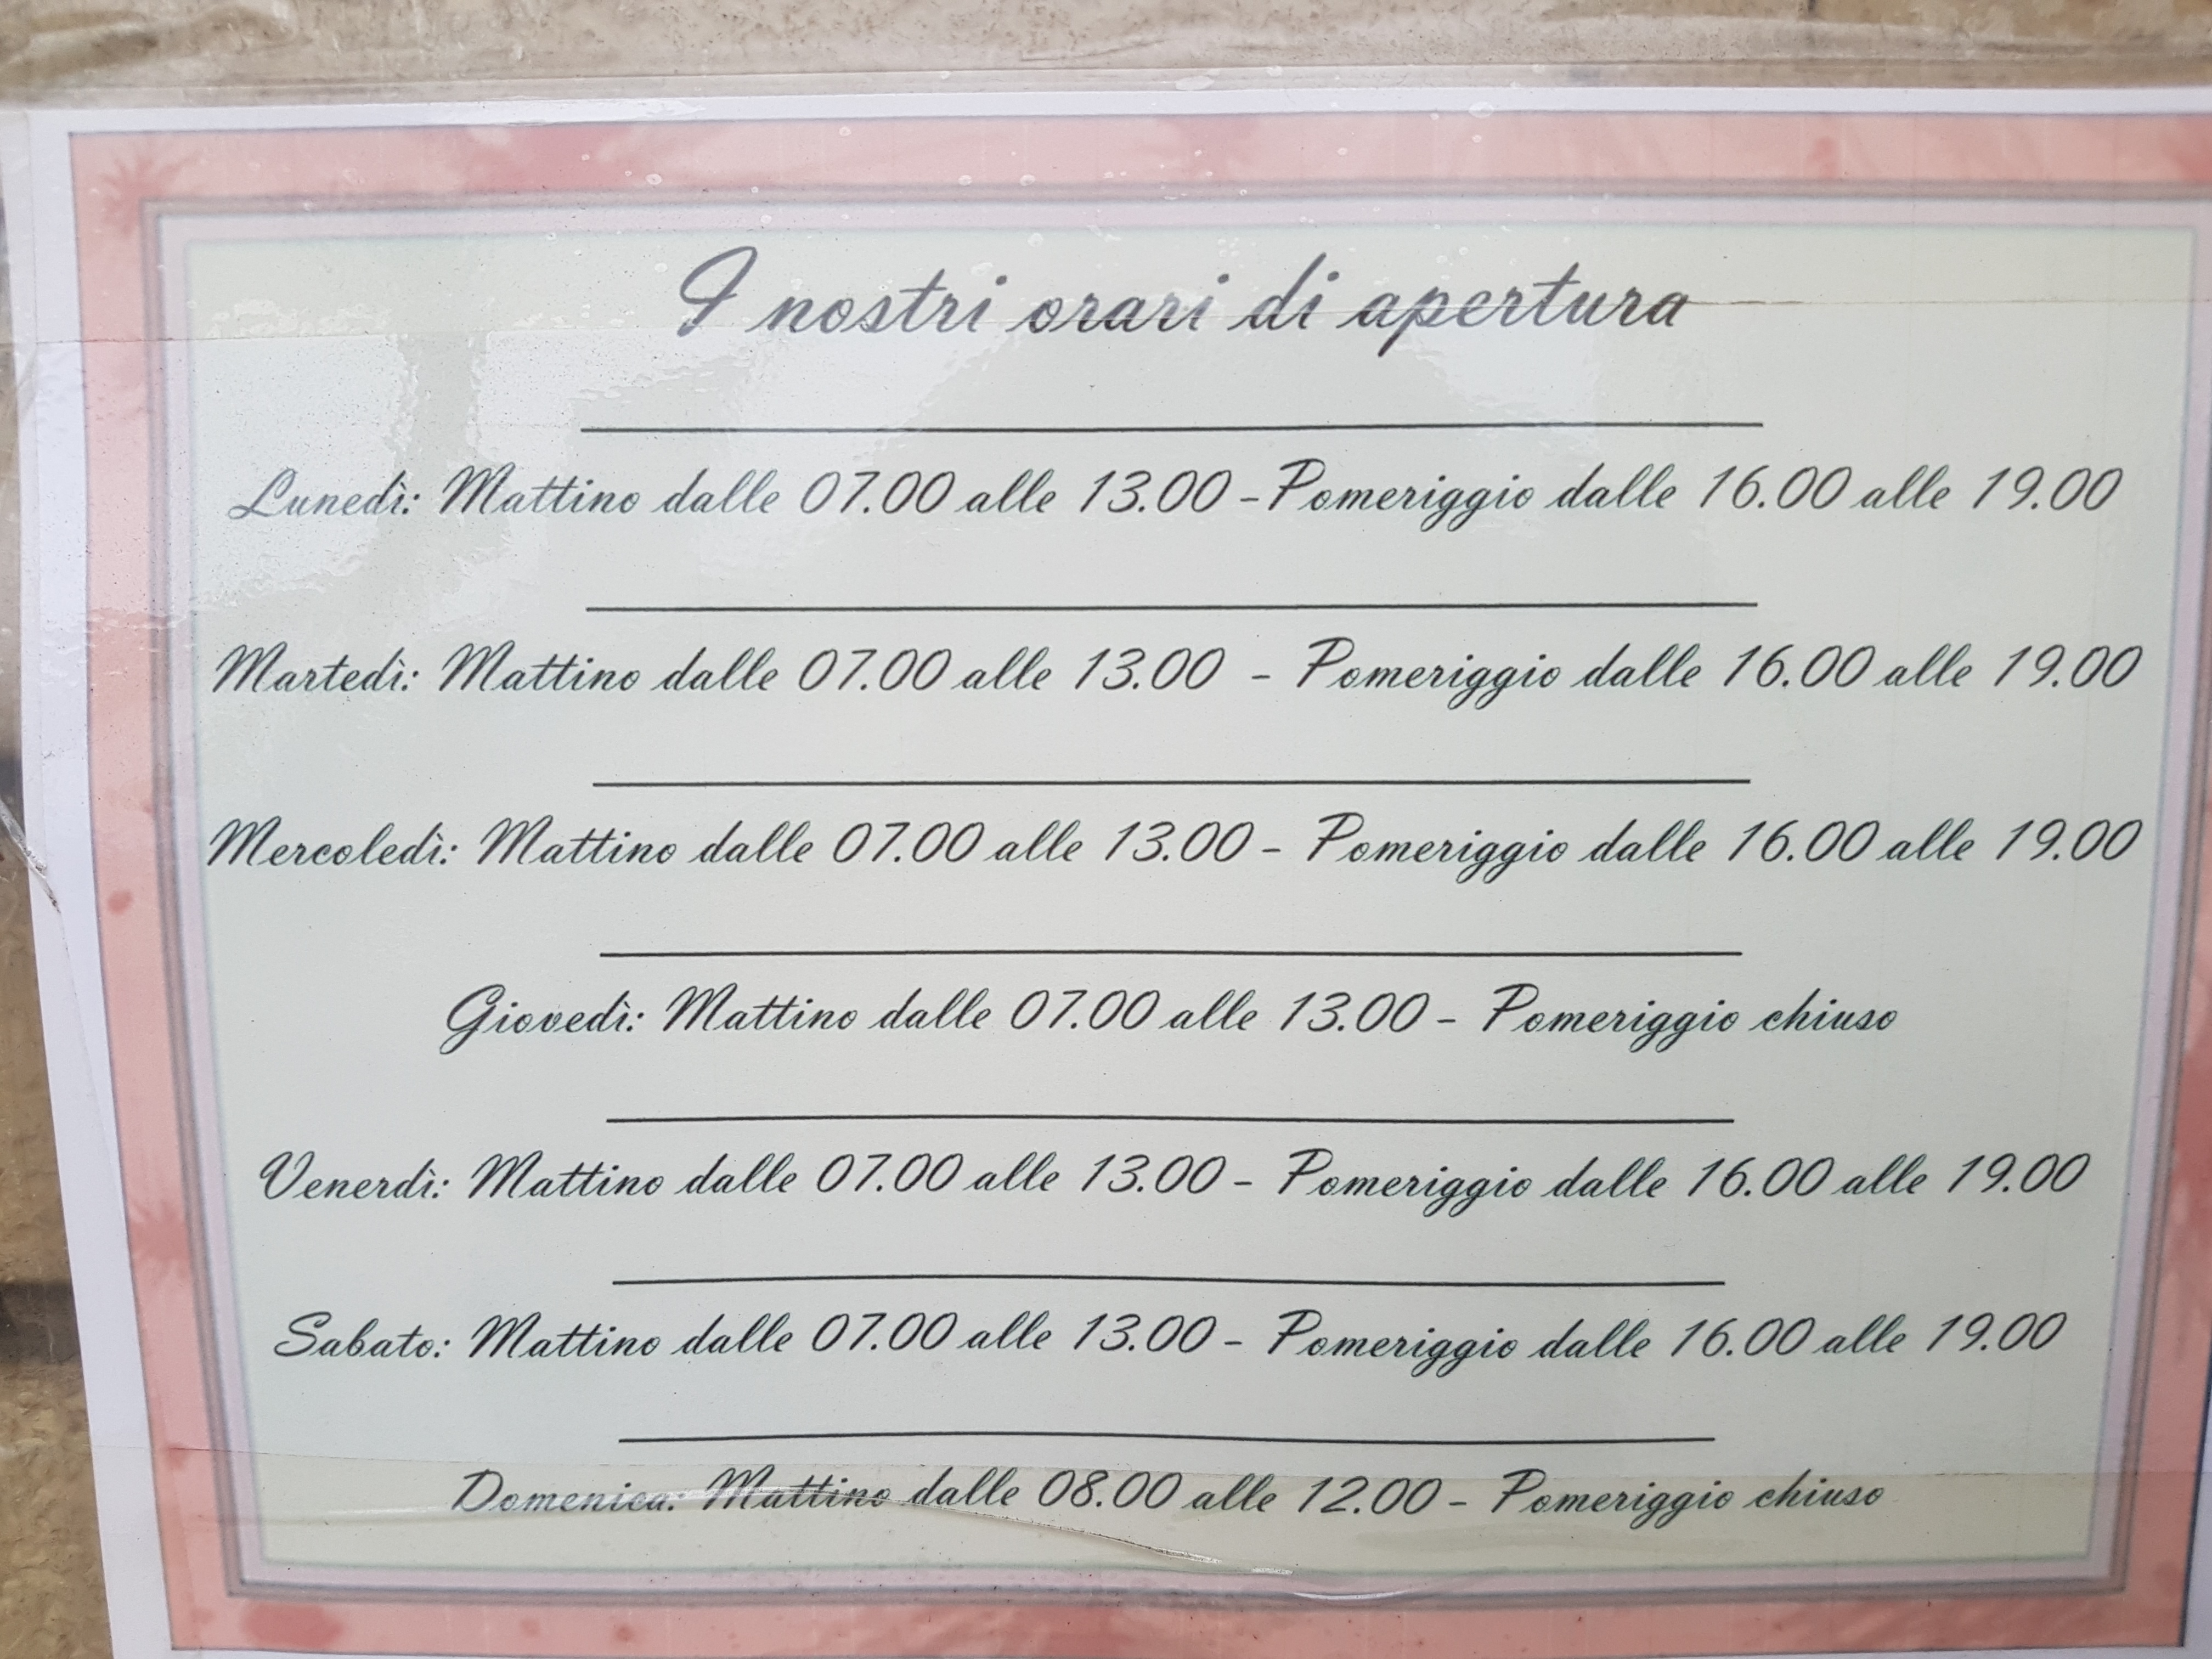 I nostri orari di apertura
Lunedì: Mattino dalle 07.00 alle 13.00 -Pomeriggio dalle 16.00 alle 19.00
Martedì: Mattino dalle 07.00 alle 13.00 - Pomeriggio dalle 16.00 alle 19.00
Mercoledì: Mattino dalle 07.00 alle 13.00 - Pomeriggio dalle 16.00 alle 19.00
Giovedì: Mattino dalle 07.00 alle 13.00 - Pomeriggio chiuso
Venerdì: Mattino dalle 07.00 alle 13.00 - Pomeriggio dalle 16.00 alle 19.00
Sabato: Mattino dalle 07.00 alle 13.00 - Pomeriggio dalle 16.00 alle 19.00
Domenica: Mattino dalle 08.00 alle 12.00 - Pomeriggio chiuso